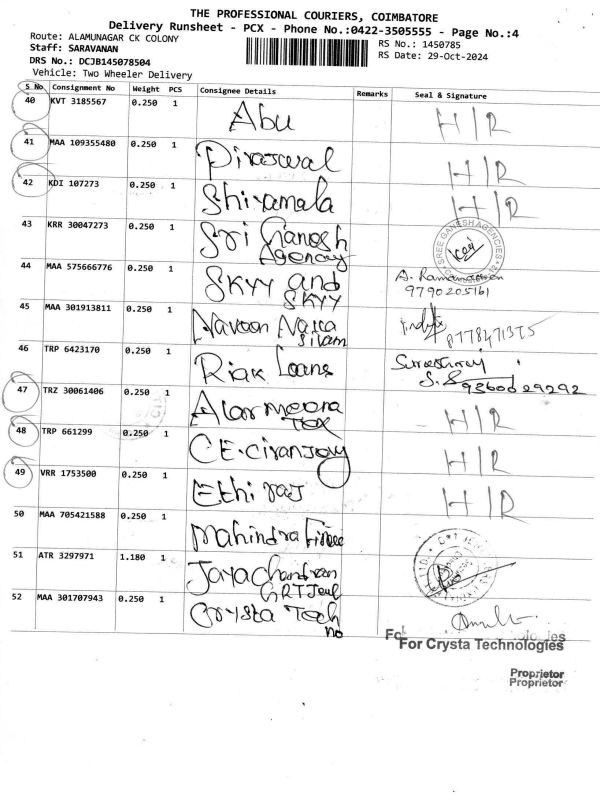 THE PROFESSIONAL COURIERS, COIMBATORE
Delivery Runsheet - PCX - Phone No.:0422-3505555 - Page No.:4
Route: ALAMUNAGAR CK COLONY
RS No.: 1450785
Staff: SARAVANAN
RS Date: 29-Oct-2024
DRS No.: DCJB145078504
Vehicle: Two Wheeler Delivery
S No Consignment No Weight PCS Consignee Details Remarks Seal & Signature
40 KVT 3185567 0.250 1 Abu H/R
41 MAA 109355480 0.250 1 H/R
42 KDI 107273 0.250 1 Shiyamala H/R
43 KRR 30047273 0.250 1 Sri Ganesh
Agency
SREE GANESH AGENCIES
44 MAA 575666776 0.250 1 Skyy and
Skyy
9790205161
45 MAA 301913811 0.250 1 Naveen
46 TRP 6423170 0.250 1 Loans
9360029292
47 TRZ 30061406 0.250 1 Tex H/R
48 TRP 661299 0.250 1 H/R
49 VRR 1753500 0.250 1 Ethiraj H/R
50 MAA 705421588 0.250 1 Mahindra
51 ATR 3297971 1.180 1 Jayachandran
52 MAA 301707943 0.250 1 Crysta Tech
no
For Crysta Technologies
Proprietor
Proprietor